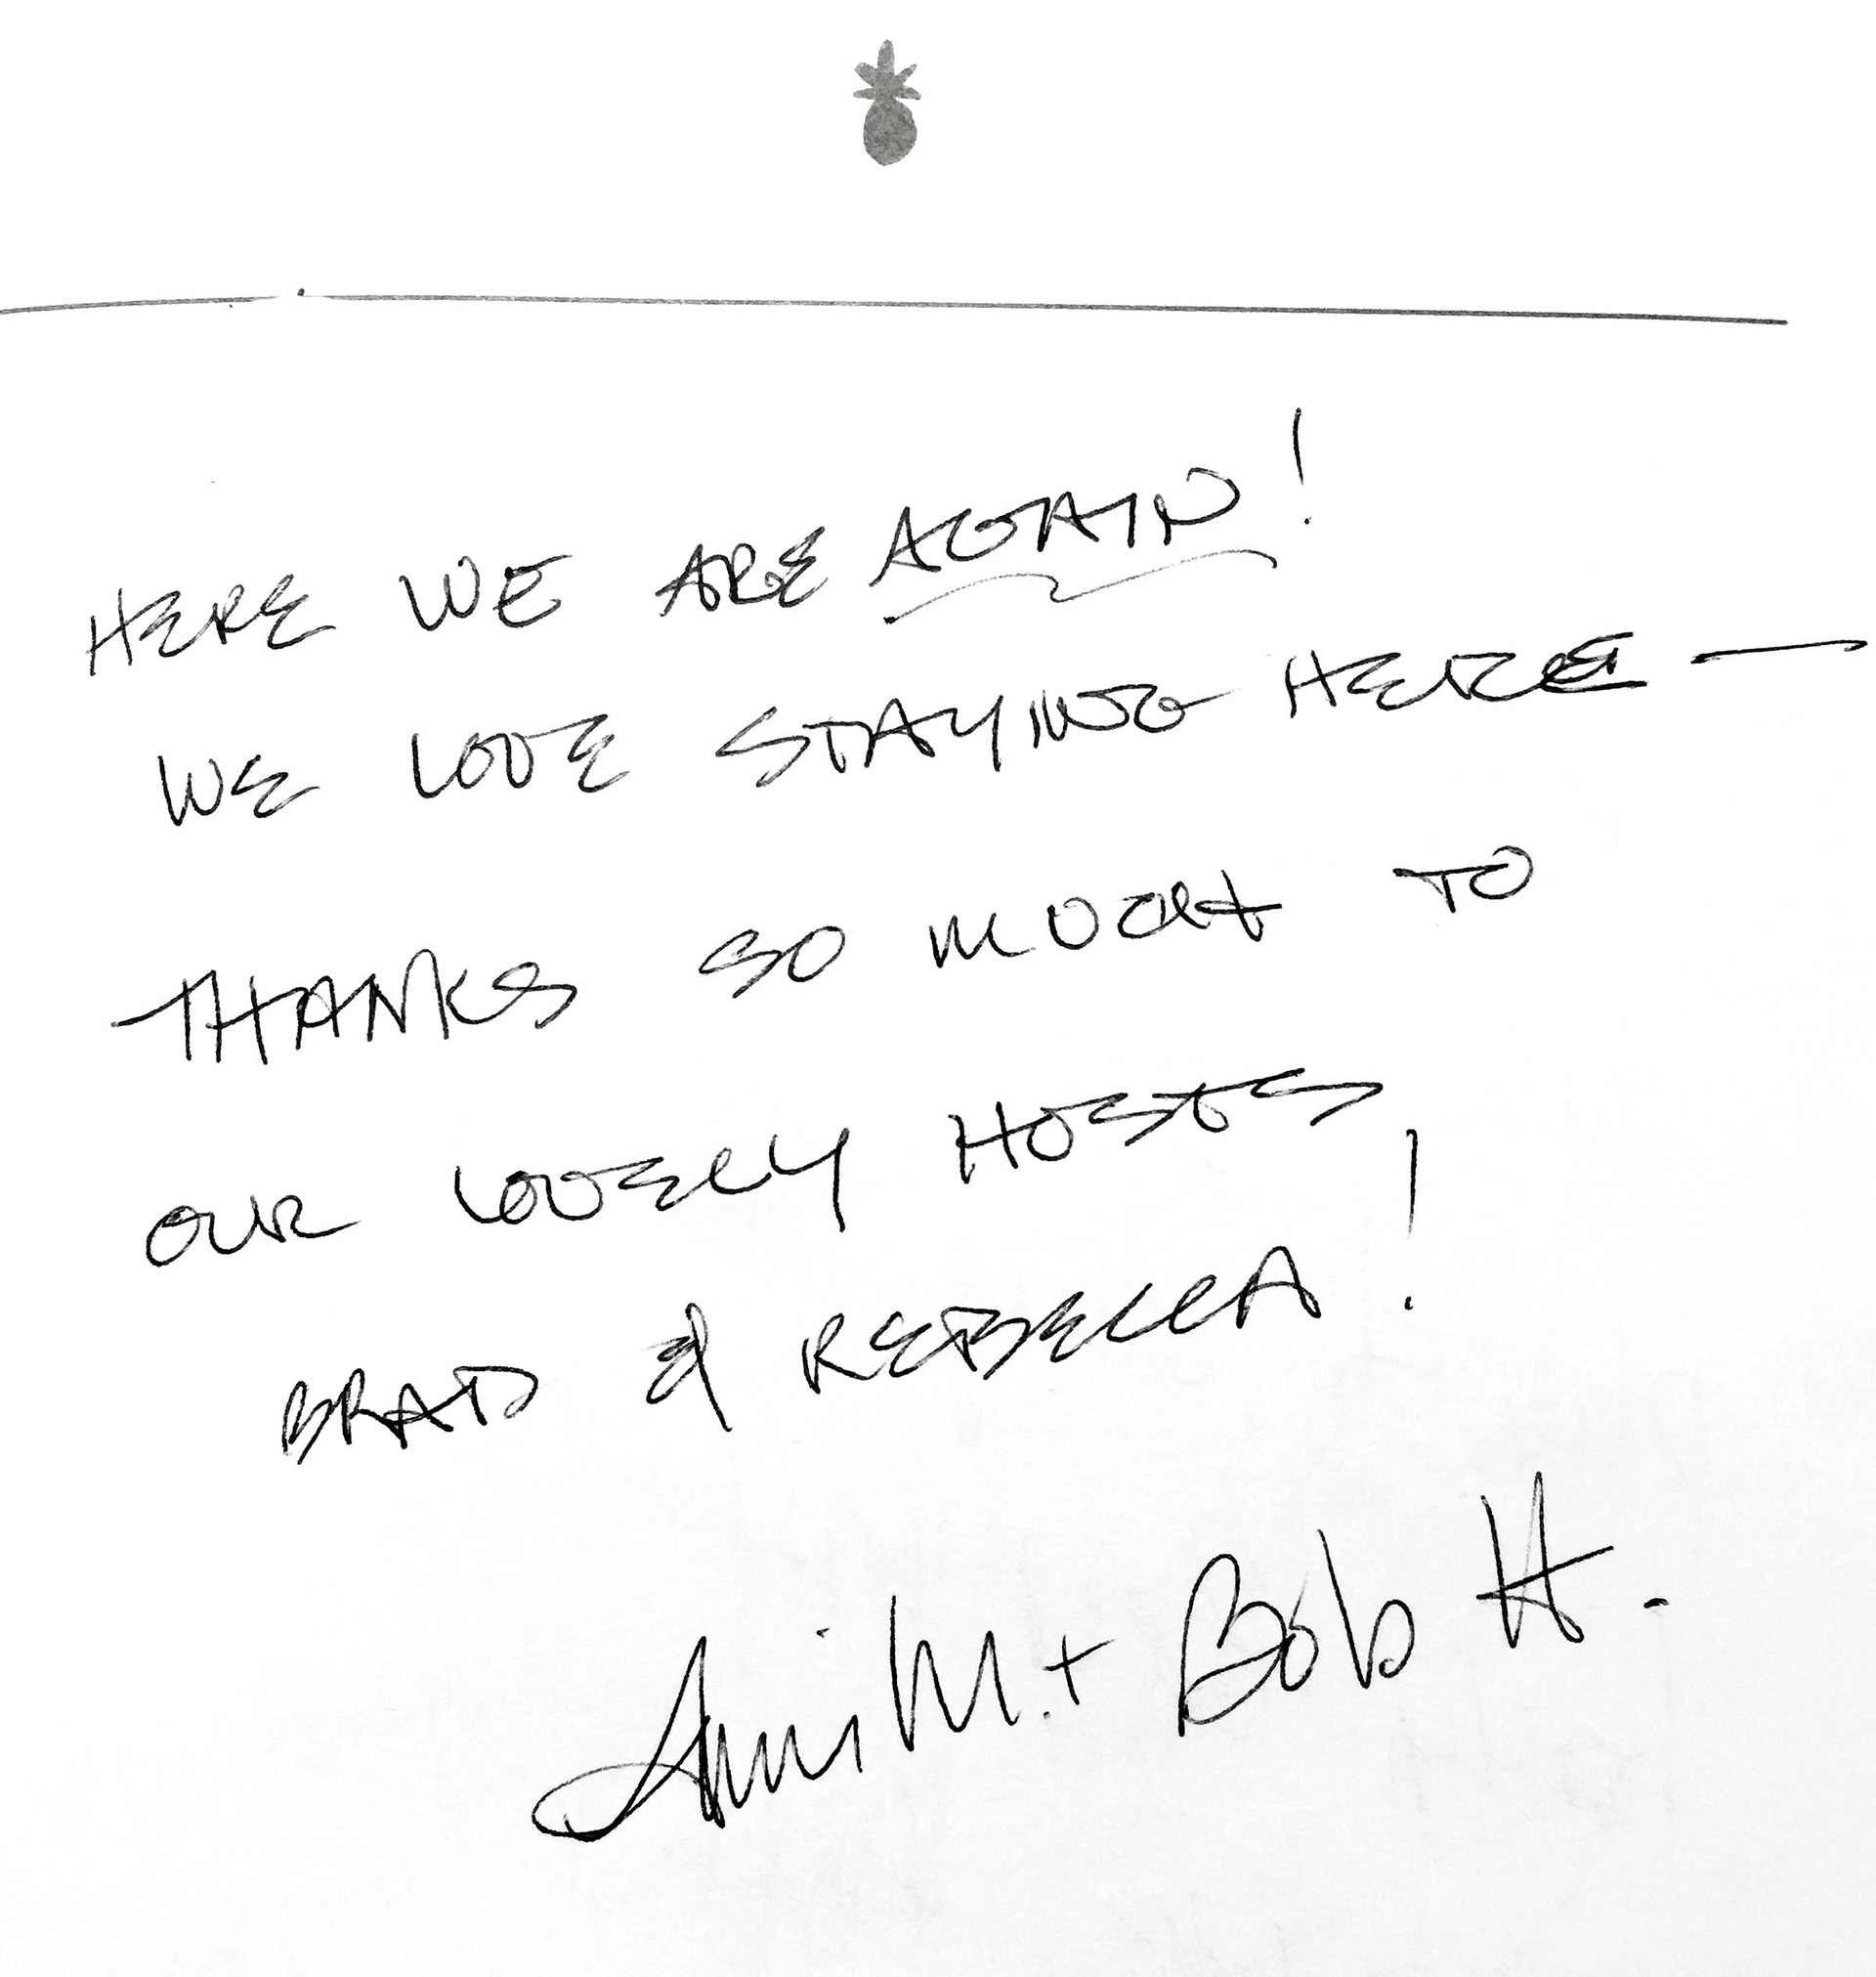 HERE WE ARE AGAIN!
WE LOVE STAYING HERE —
THANKS SO MUCH TO
OUR LOVELY HOSTS
BRAD & REBECCA!
M. + Bob H.